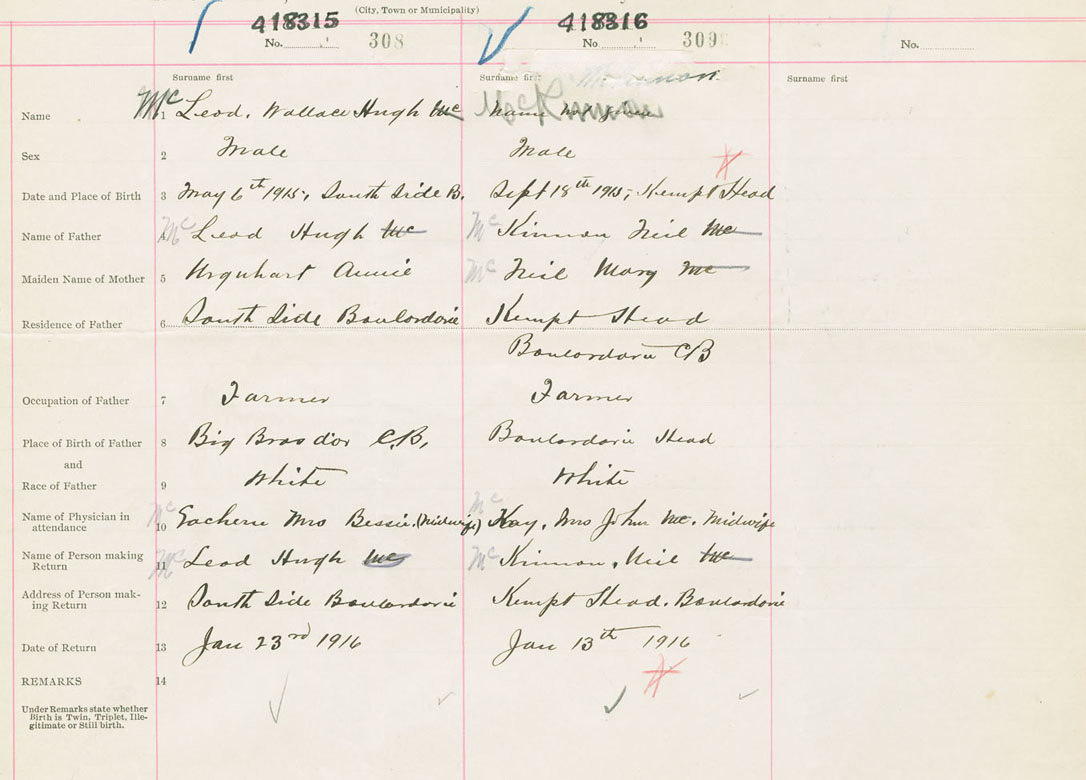 (City, Town or Municipality)
418315 418316
No. 308 No 309 No.
Surname first Surname first Surname first
Name Mc 1 Lead, Wallace Hugh Mc McKinnon
Sex 2 Male Male
Date and Place of Birth 3 May 6th 1915, South Side B. Sept 18th 1915, Kempt Head
Name of Father Mc 4 Lead Hugh Mc Mc Kinnon Neil Mc
Maiden Name of Mother 5 Urquhart Annie Mc Neil Mary Mc
Residence of Father 6 South Side Boulardarie Kempt Head
Boulardarie CB
Occupation of Father 7 Farmer Farmer
Place of Birth of Father 8 Big Bras d'or C.B. Boulardarie Head
and
Race of Father 9 White White
Name of Physician in Mc Mc
attendance 10 Eachern Mrs Bessie (Midwife) Kay, Mrs John Mc. Midwife
Name of Person making
Return Mc 11 Lead Hugh Mc Mc Kinnon, Neil Mc
Address of Person mak-
ing Return 12 South Side Boulardarie Kempt Head. Boulardarie
Date of Return 13 Jan 23rd 1916 Jan 13th 1916
REMARKS 14
Under Remarks state whether
Birth is Twin, Triplet, Ille-
gitimate or Still birth.